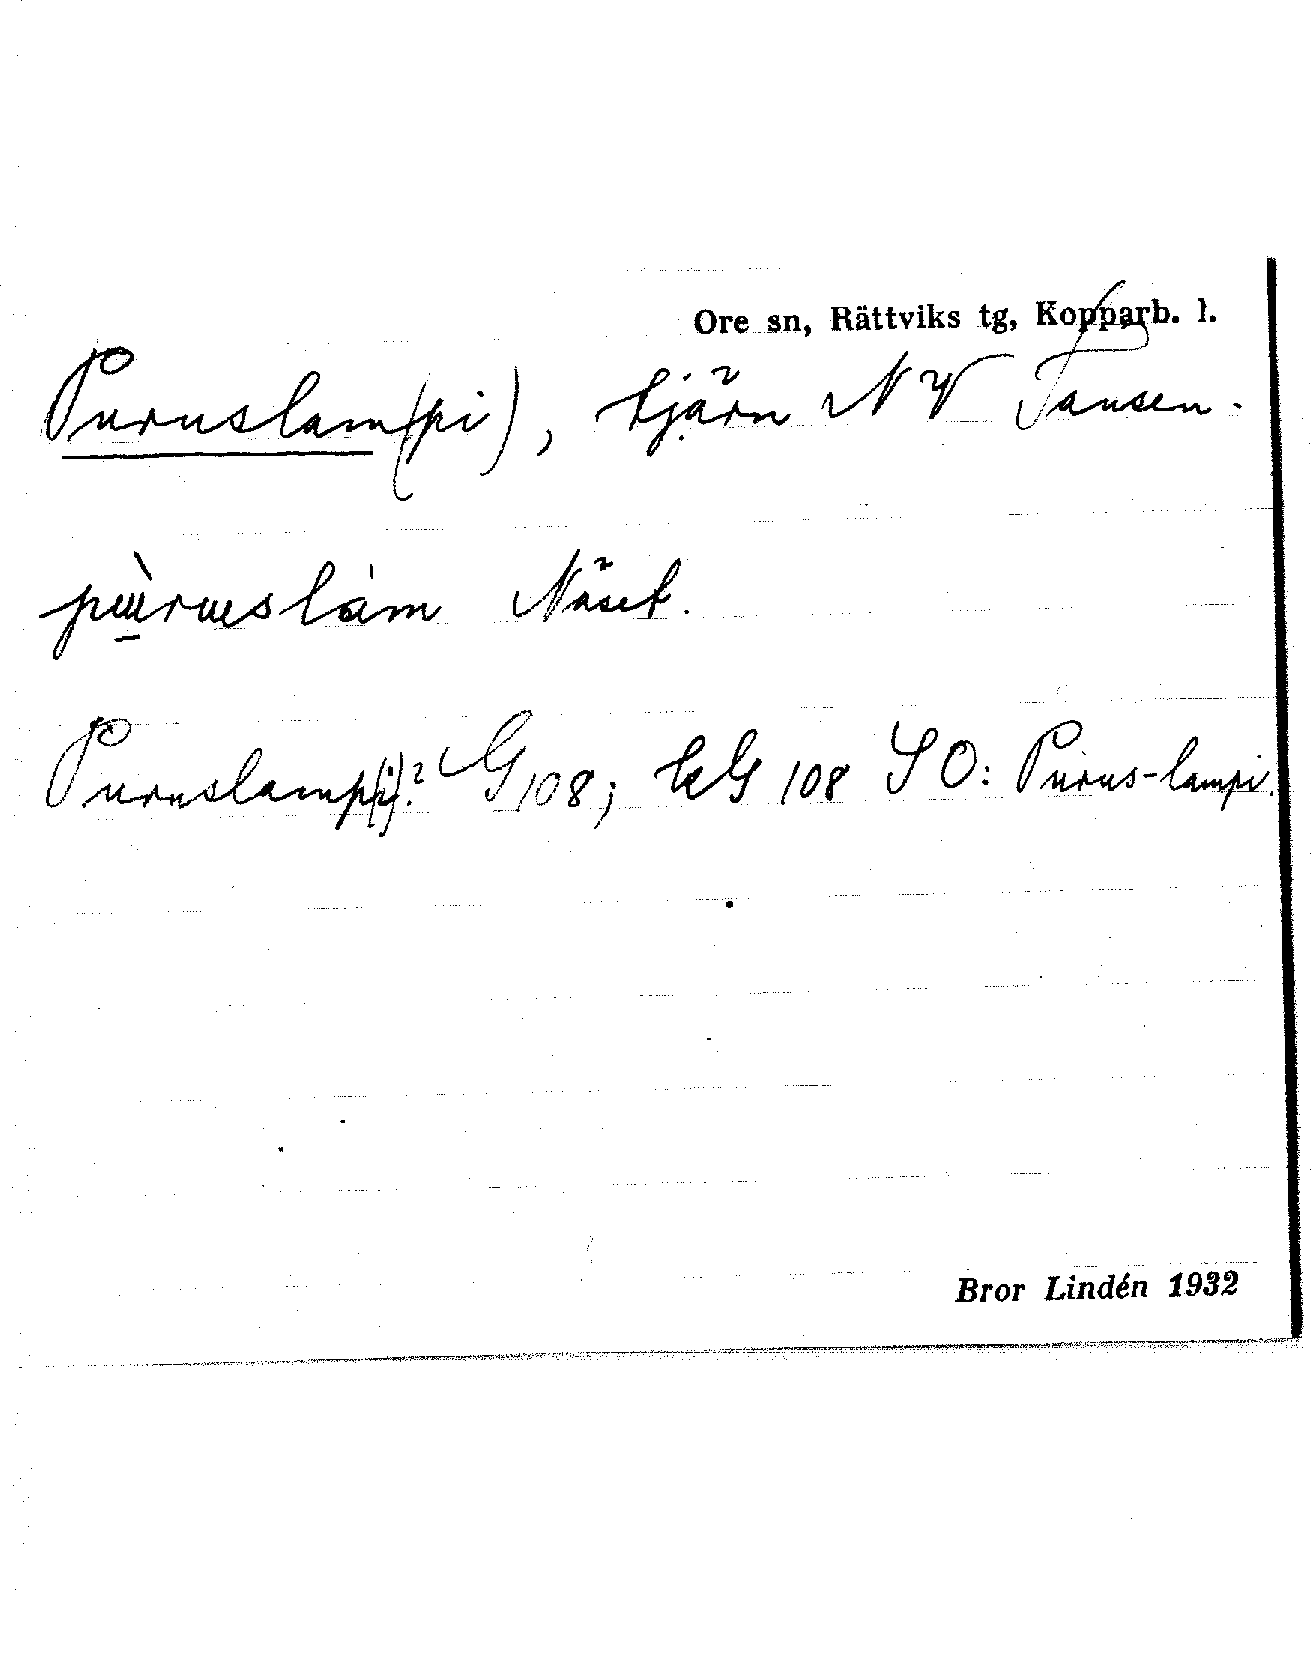 Ore sn, Rättviks tg, Kopparb. l.
Puruslam(pi), tjärn NV Tansen.
pùrusla̍m Näset.
Puruslamp(i)? G 108; kG 108 SO: Purus-lampi.
Bror Lindén 1932